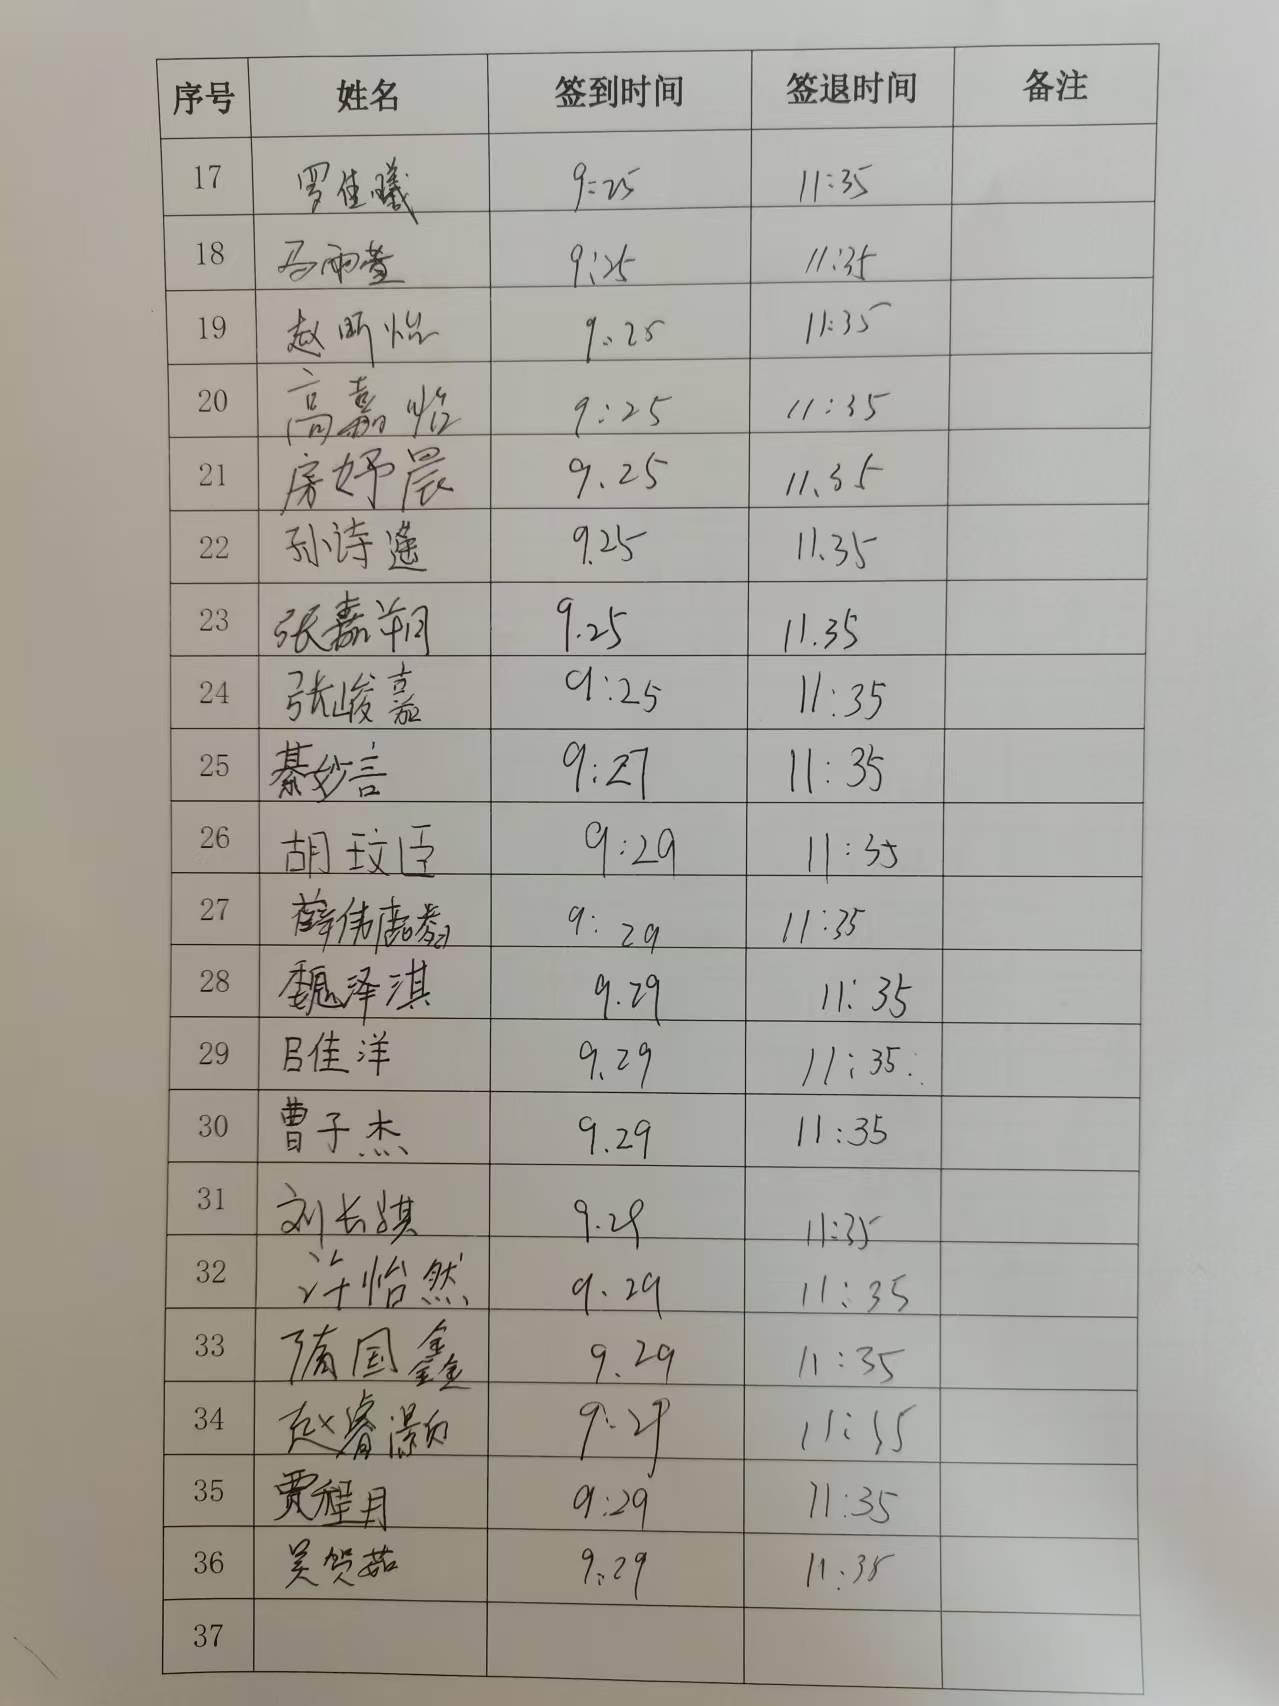 序号 姓名 签到时间 签退时间 备注
17 罗佳曦 9:25 11:35
18 马雨萱 9:25 11:35
19 赵昕怡 9:25 11:35
20 高嘉怡 9:25 11:35
21 房妤晨 9.25 11.35
22 孙诗遥 9.25 11.35
23 张嘉翔 9.25 11.35
24 张峻嘉 9:25 11:35
25 綦妙言 9:27 11:35
26 胡玟臣 9:29 11:35
27 薛伟 9:29 11:35
28 魏泽淇 9.29 11:35
29 吕佳洋 9.29 11:35
30 曹子杰 9.29 11:35
31 刘长骐 9.29 11:35
32 许怡然 9.29 11:35
33 隋国鑫 9.29 11:35
34 赵睿灏 9:29 11:35
35 贾程月 9:29 11:35
36 吴贺茹 9:29 11:35
37